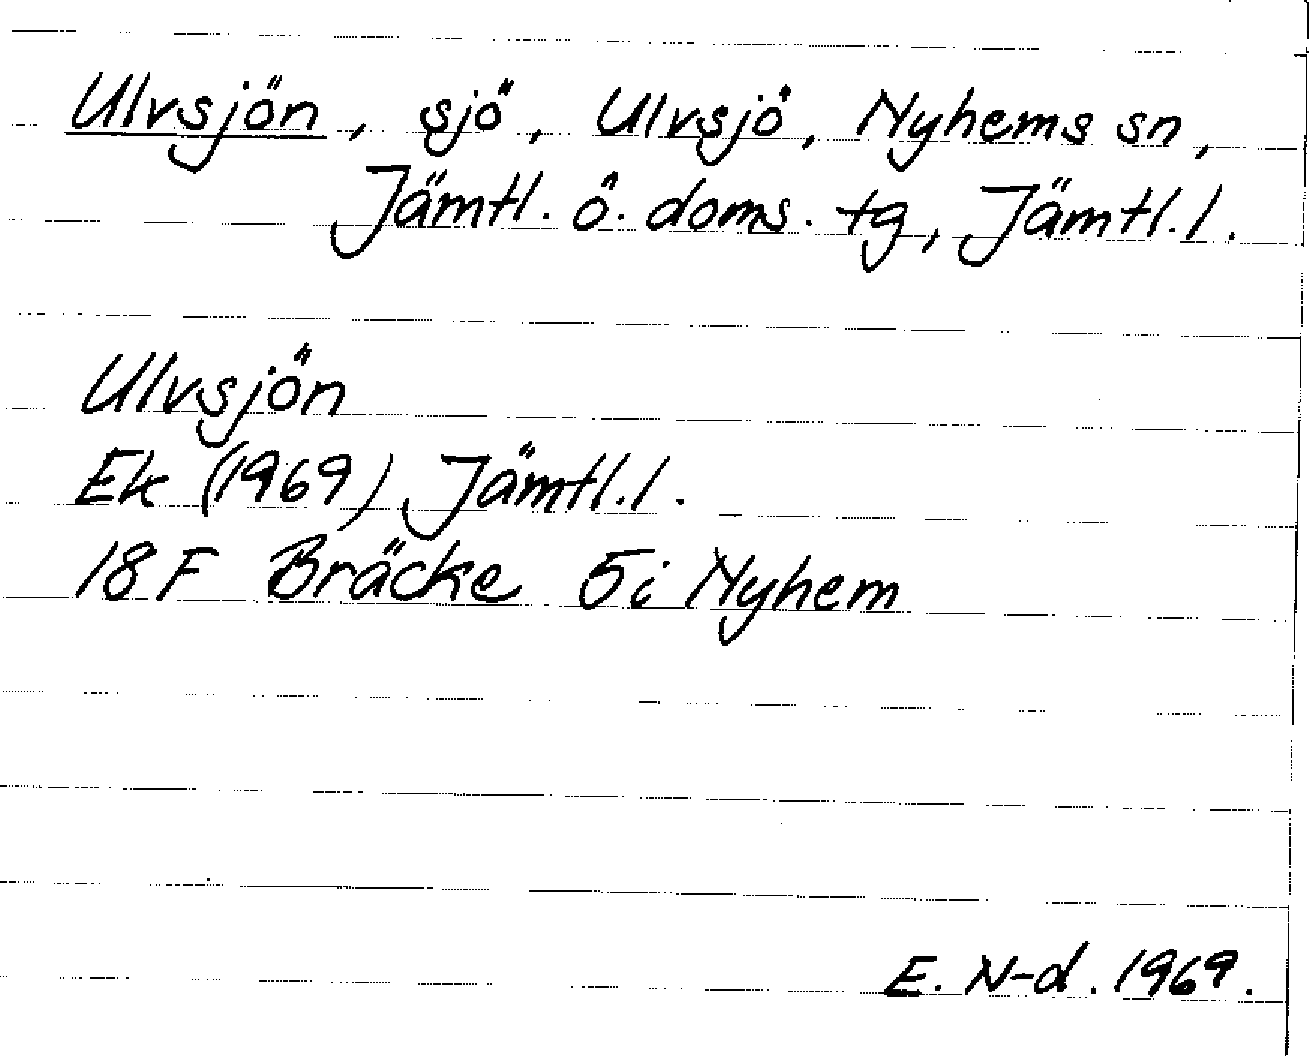 Ulvsjön, sjö, Ulvsjö, Nyhems sn,
Jämtl. ö. doms. tg, Jämtl. l.
Ulvsjön
Ek (1969) Jämtl. l.
18 F Bräcke 5i Nyhem
E. N-d. 1969.